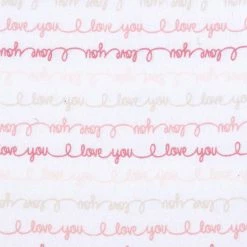 I love you I love you
I love you I love you
I love you I love you
I love you I love you
I love you I love you
I love you I love you
I love you I love you
I love you I love you
I love you I love you
I love you I love you